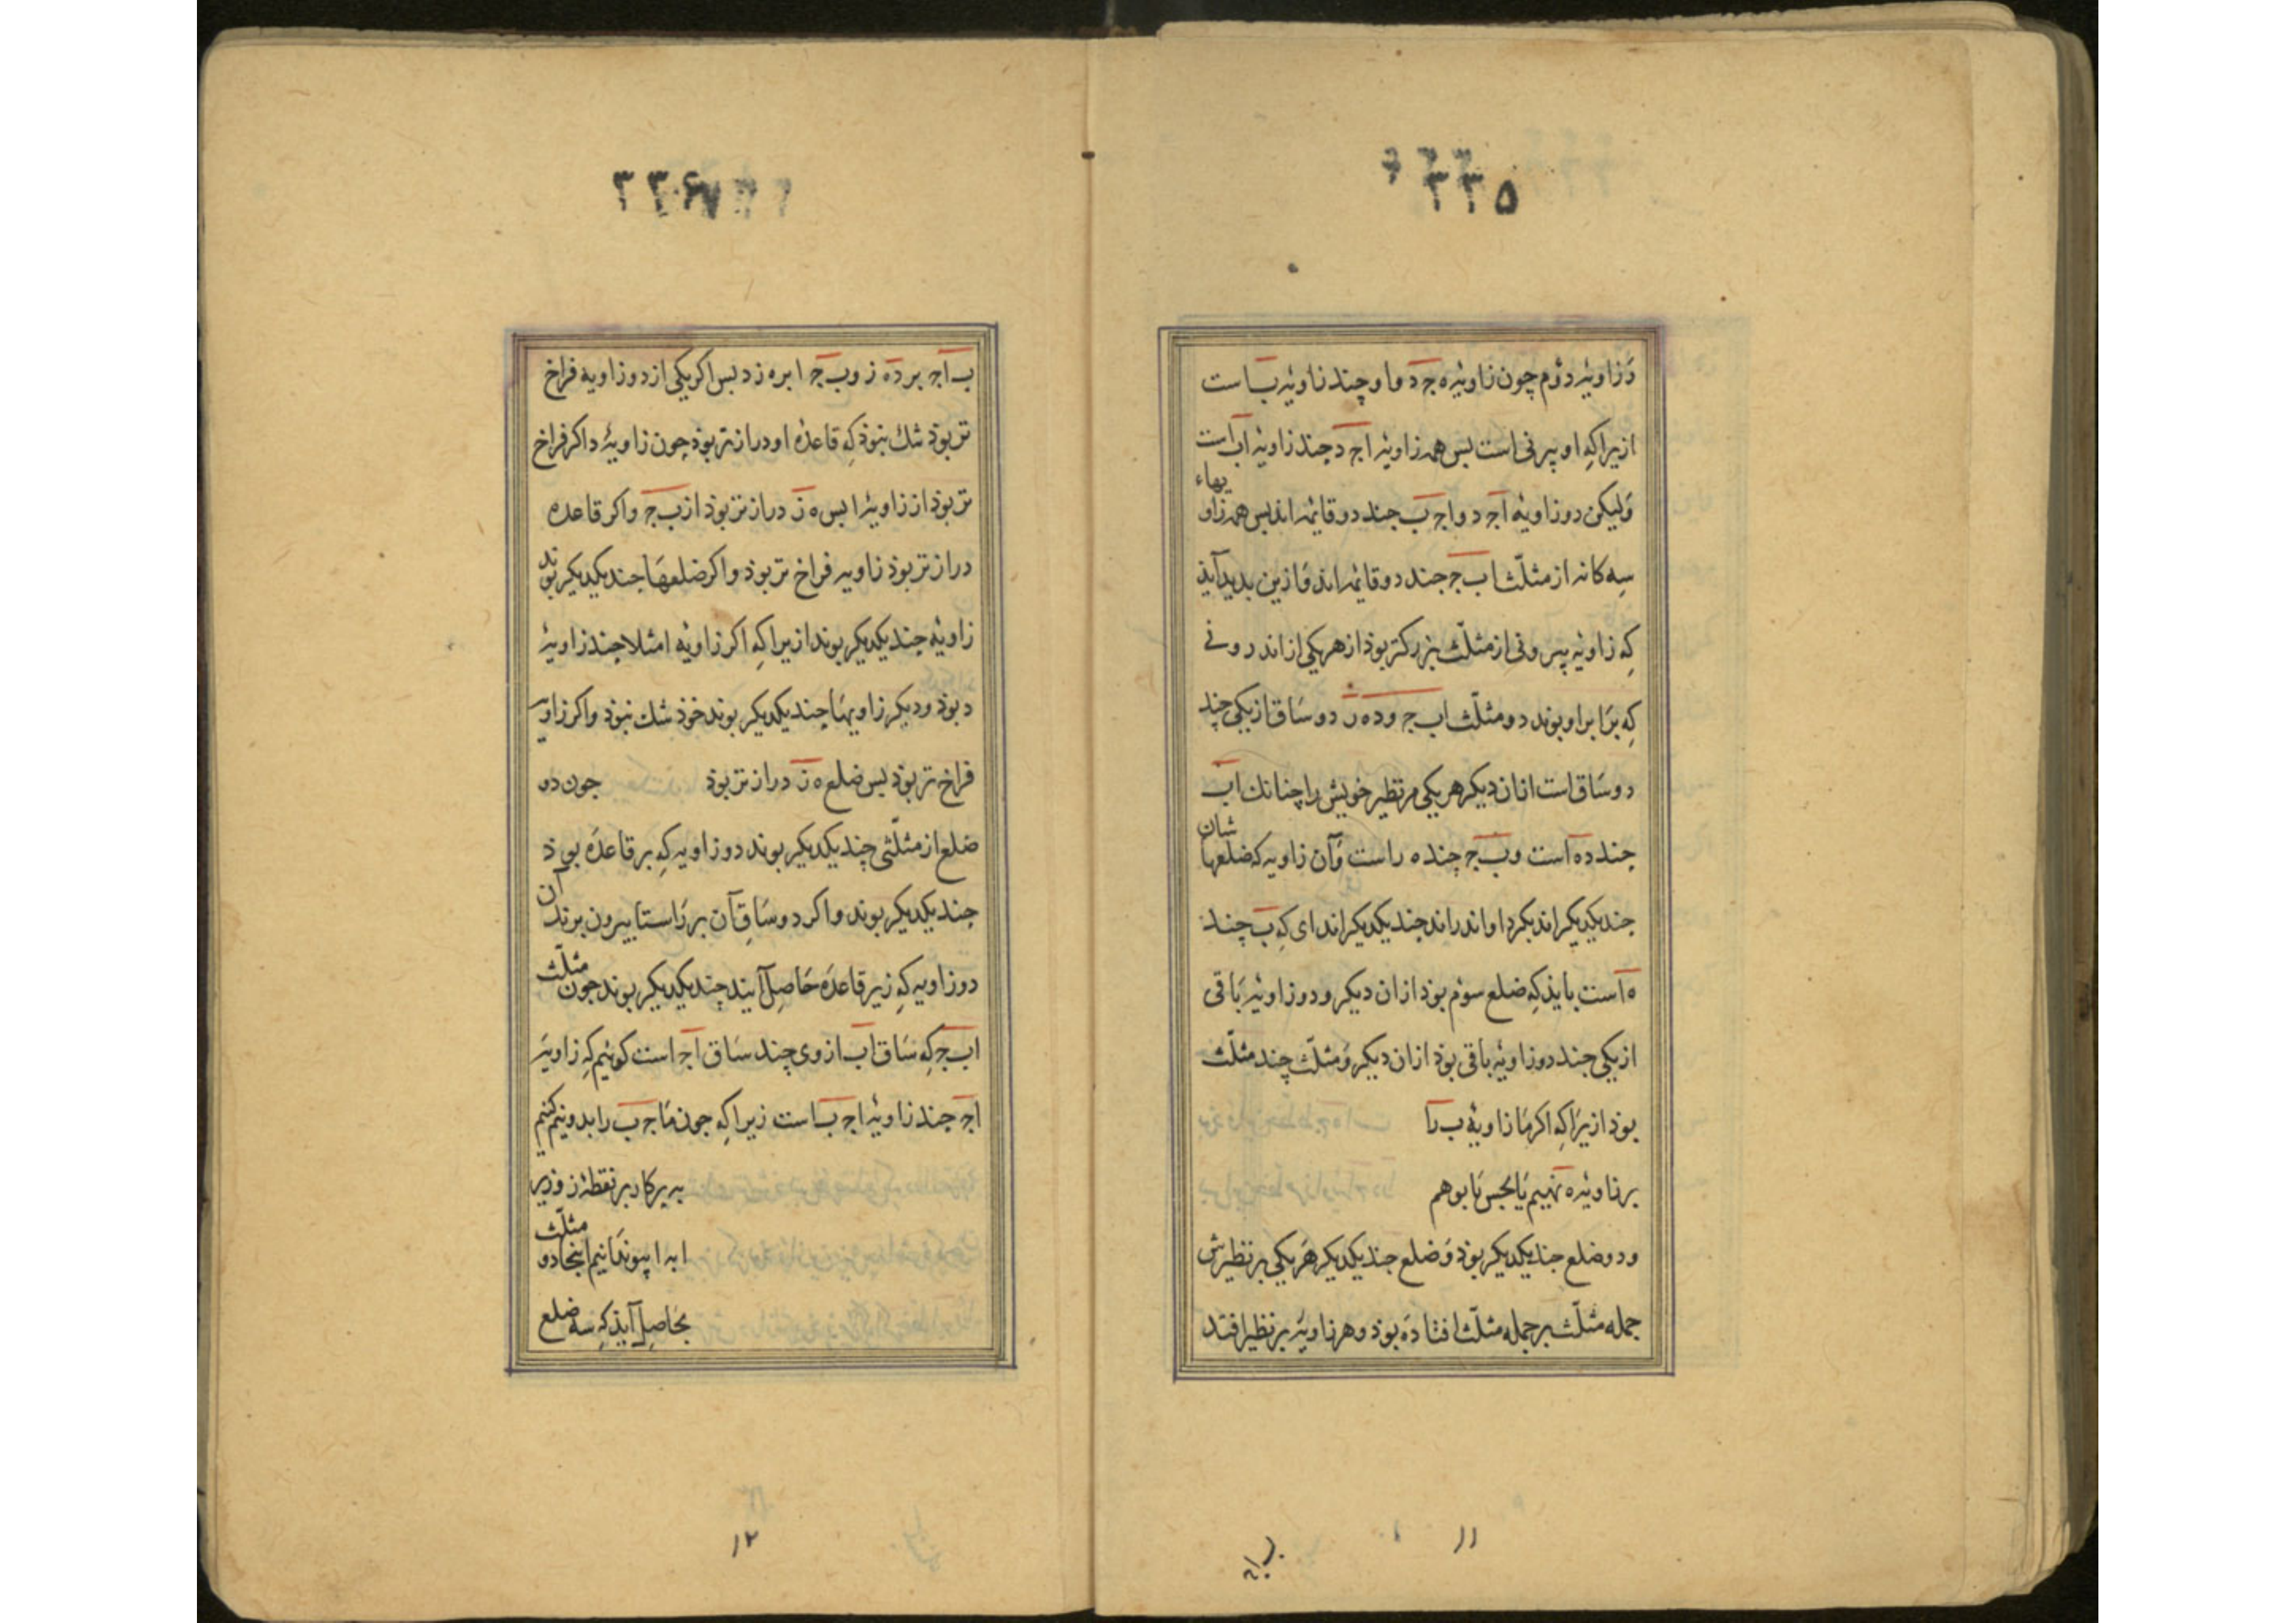 ۲۳۵
وَ زاویهٔ دوُم چون زاویهٔ ه جـ د و او چند زاویهٔ ب است
ازیرا کِه او بیرونی است بس همه زاویهٔ اجـ د چند زاویهٔ اب است
وَلیکن دو زاویهٔ اجـ د و اجـ ب جند دو قائمه اند بس همه زاویهاء
سِه کانه از مثلّث اب جـ جند دو قائمه اند وَ ازین بدید آیذ
کِه زاویهٔ بیرونی از مثلّث بزرکتر بوذ از هر یکی از اندرونی
کِه برَابر او بوند دو مثلّث اب جـ و ده ز دو سَاق از یکی چند
دو سَاق است از ان دیکر هر یکی مر نظیر خویش را چنانك اب
جند ده است و ب جـ چند ه ز است وَ آن زاویه که ضلعهاشان
جند یکدیکر اند بکرد او اندراند جند یکدیکر اند ای کِه ب چند
ه است بایذ کِه ضلع سوُم بوذ از ان دیکر و دو زاویهٔ بَاقی
از یکی جند دو زاویهٔ باقی بوذ از ان دیکر وَ مثلّث چند مثلّث
بوذ ازیرَا کِه اکر مَا زاویهٔ ب رَا
بر زاویهٔ ه نهیم یَا بحس یَا بوهم
و دو ضلع جند یکدیکر بوذ وَ ضلع جند یکدیکر هَر یکی بر نظیرش
جمله مثلّث بر جمله مثلّث افتادَه بوذ و هر زاویهٔ بر نظیر افتد
۱۱
۲۳۶
ب اجـ بر ده ز و ب جـ ا بر ه ز د بس اکر یکی از دو زاویه فراخ
تر بوذ شك نبوذ کِه قاعدهٔ او دراز تر بوذ چون زاویهٔ د اکر فراخ
تر بوذ از زاویهٔ ا بس ه ز دراز تر بوذ از ب جـ و اکر قاعده
دراز تر بوذ زاویه فراخ تر بوذ و اکر ضلعهَا جند یکدیکر بوند
زاویهٔ جند یکدیکر بوند ازیرا کِه اکر زاویهٔ ا مثلا چند زاویهٔ
د بوذ و دیکر زاویهَا چند یکدیکر بوند خوذ شك نبوذ و اکر زاویه
فراخ تر بوذ بس ضلع ه ز دراز تر بوذ جون دو
ضلع از مثلّثی چند یکدیکر بوند دو زاویه کِه بر قاعدَه بوذ
جند یکدیکر بوند و اکر دو سَاقِ آن بر رَاستا بیرون برند آن
دو زاویه کِه زیر قاعدَه حَاصِل آیند چند یکدیکر بوند جون مثلّث
اب جـ کِه سَاق اب از وی چند سَاق اجـ است کوئیم کِه زاویهَ
اجـ جند زاویهٔ اجـ ب است زیرا کِه جون مَا جـ ب را بدو نیم کنیم
به برکار بر نقطهٔ ز و زبر
ا به ا پیوندَانیم اینجا دو مثلّث
بحَاصِل آیذ کِه سه ضلع
۱۲